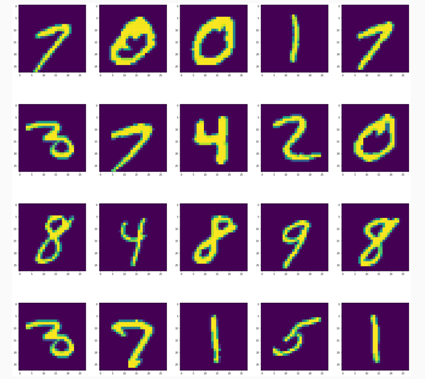 7 0 0 1 7
3 7 4 2 0
8 4 8 9 8
3 7 1 5 1